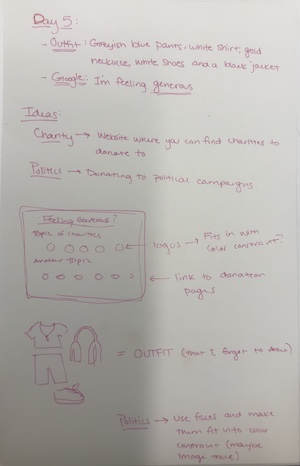 Day 5:
- Outfit: Greyish blue pants, white shirt, gold
necklace, white shoes and a black jacket
- Google: I'm feeling generous
Ideas:
Charity → Website where you can find charities to
donate to
Politics → Donating to political campaigns
Feeling Generous?
Topic of charities
logos → Fits in with
color constraint?
Another Topic
link to donation
pages
= OUTFIT (that I forgot to draw)
Politics → Use faces and make
them fit into color
constraint (maybe
image trace)